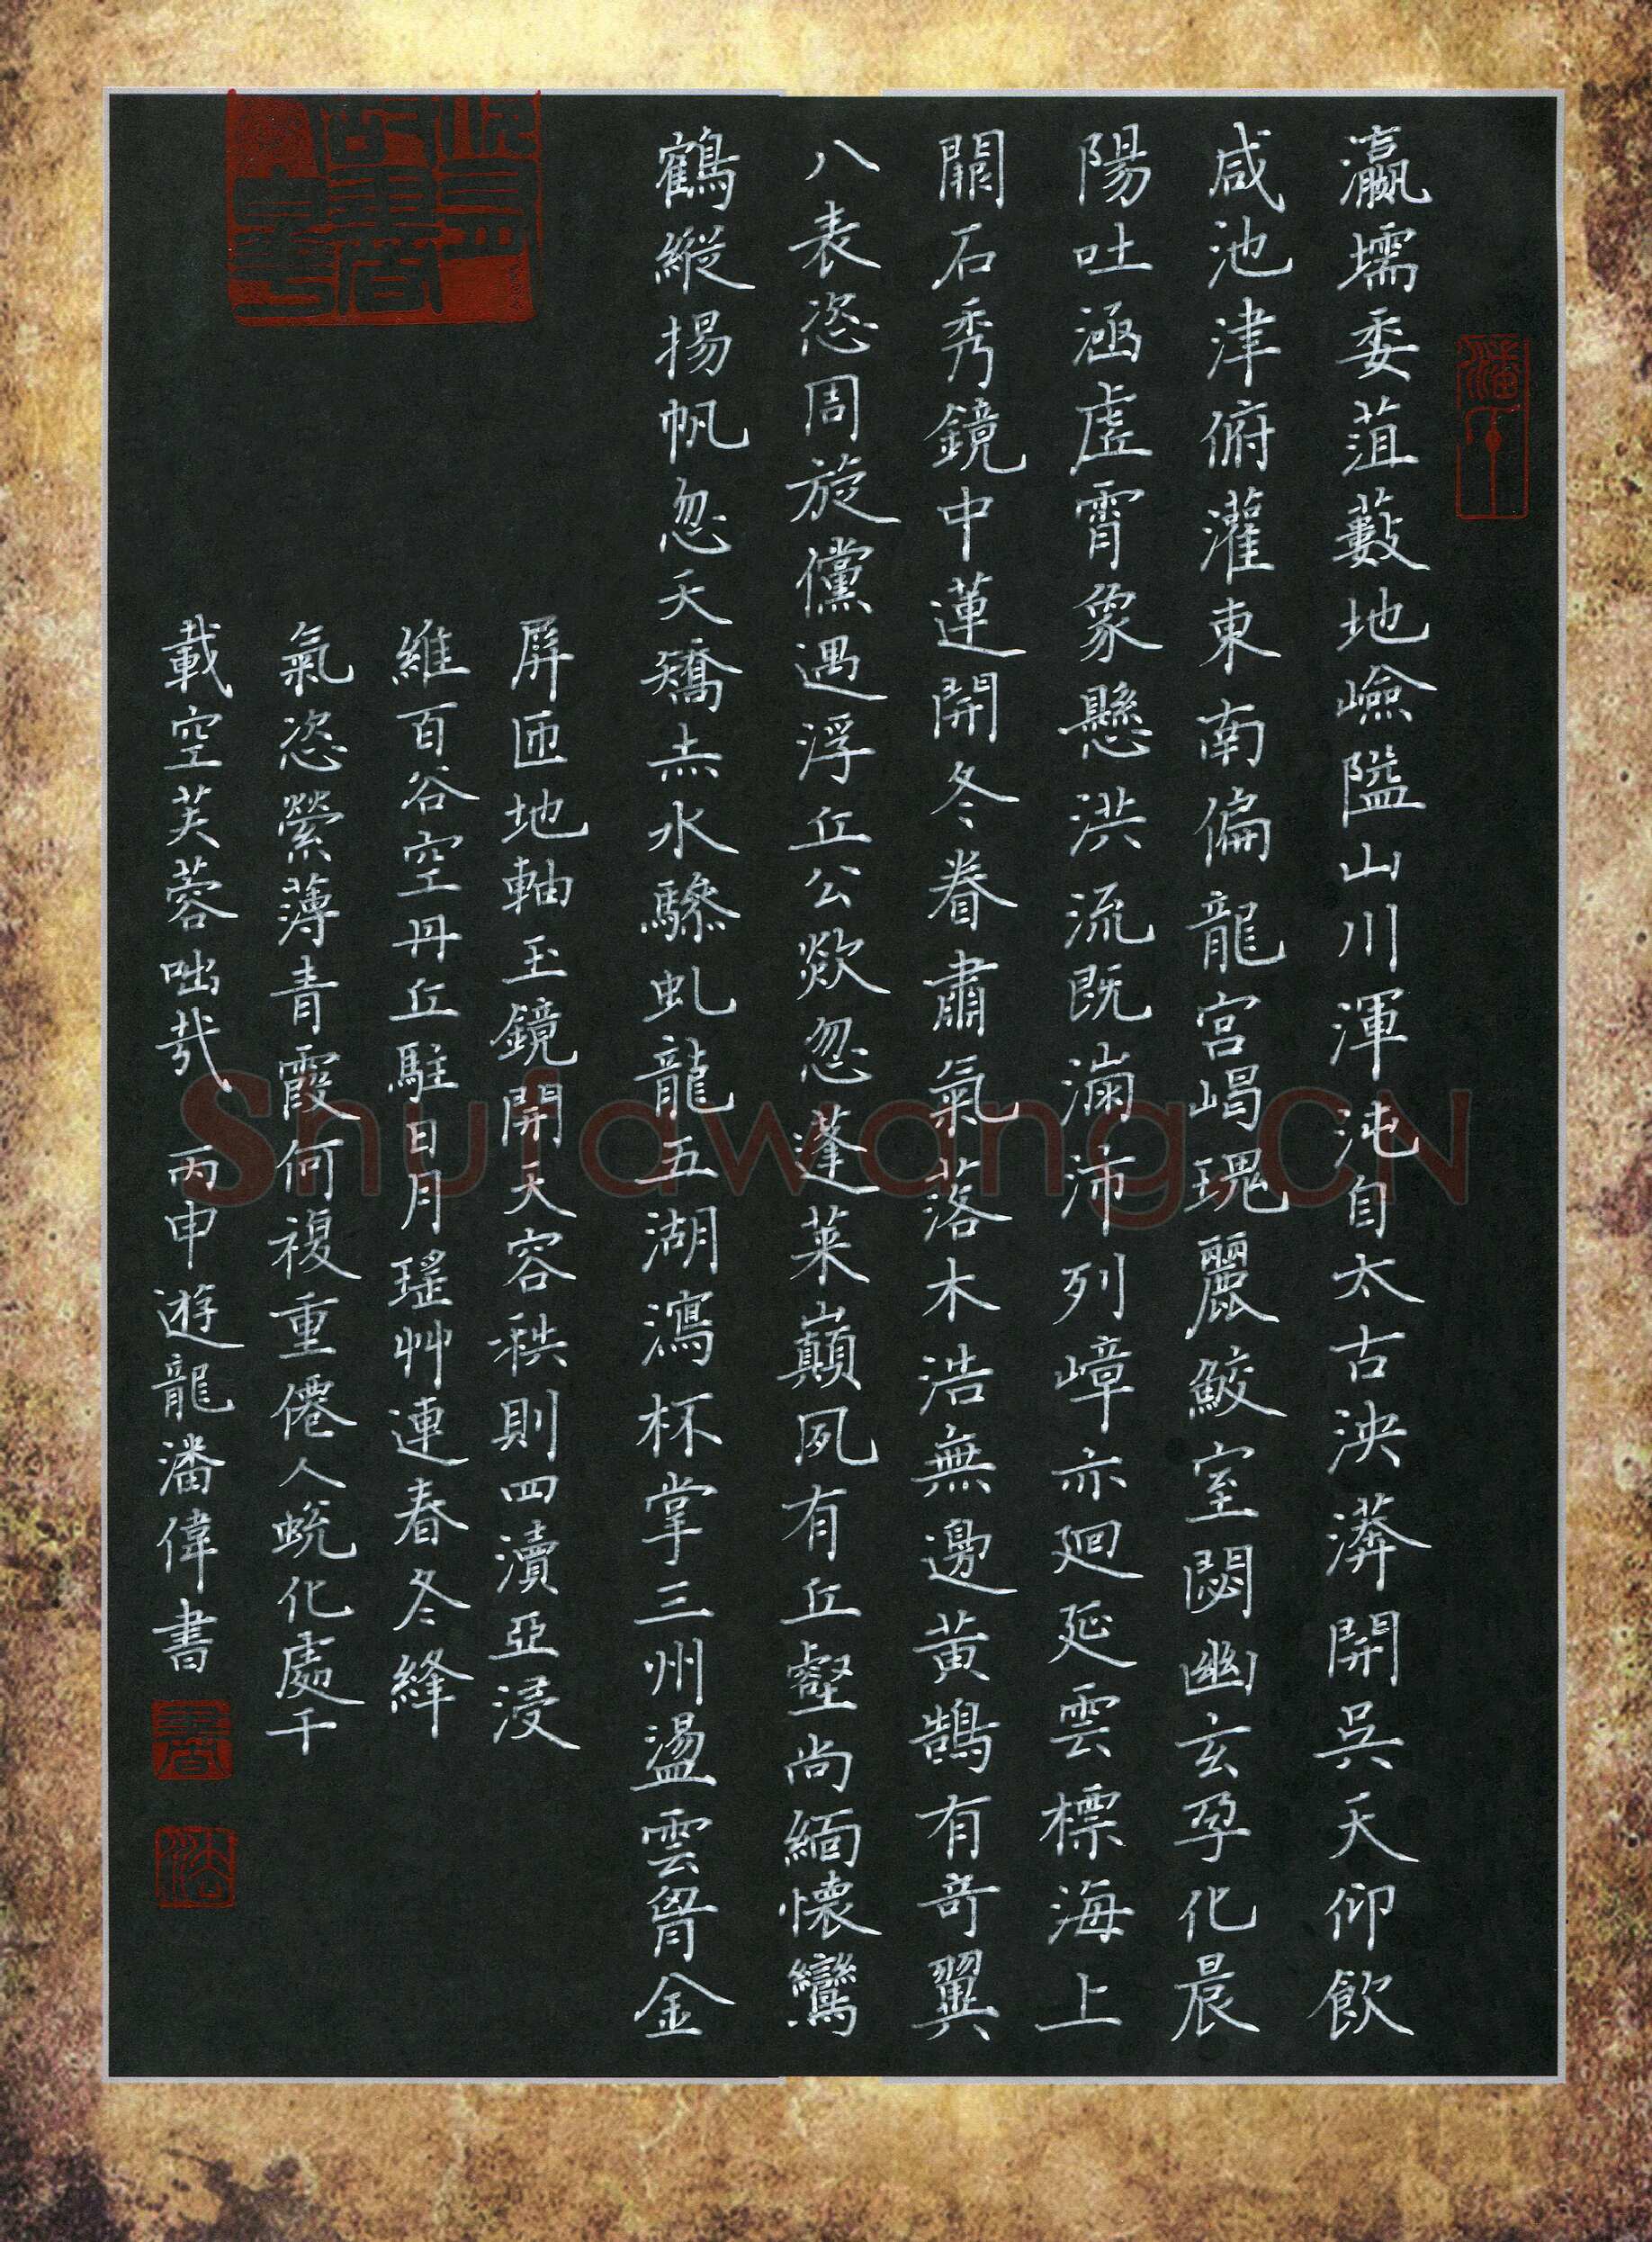 瀛壖委菹藪地嶮隘山川渾沌自太古泱漭開吳天仰飲
咸池津俯灌東南偏龍宮崌瑰麗鮫室閟幽玄孕化晨
陽吐涵虛霄象懸洪流既滿沛列嶂亦廻延雲標海上
關石秀鏡中蓮開冬眷肅氣落木浩無邊黃鵠有奇翼
八表恣周旋儻遇浮丘公欻忽蓬萊巔夙有丘壑尚緬懷鸞
鶴縱揚帆忽夭矯赤水驂虬龍五湖瀉杯掌三州盪雲胷金
屏匝地軸玉鏡開天容秩則四瀆亞浸
維百谷空丹丘駐日月瑤艸連春冬絳
氣恣縈薄青霞何複重僊人蛻化處千
載空芙蓉咄哉 丙申遊龍潘偉書
Shufawang.CN